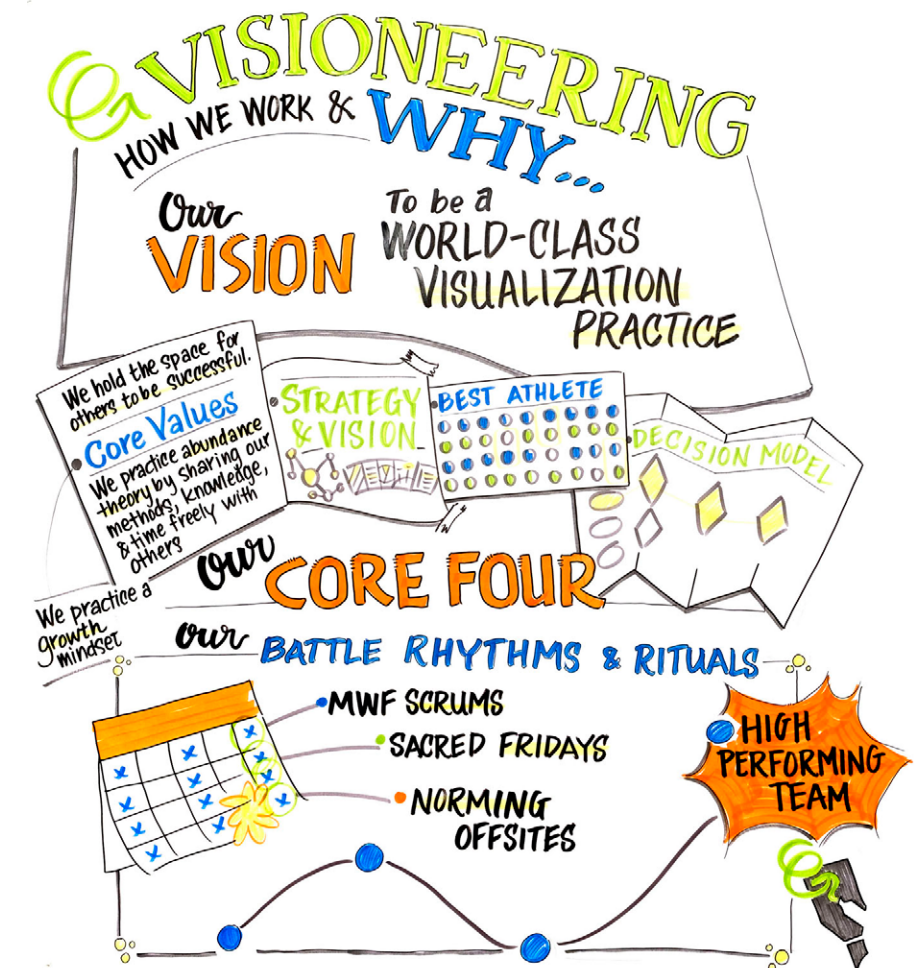 VISIONEERING
HOW WE WORK & WHY...
Our
VISION
To be a
WORLD-CLASS
VISUALIZATION
PRACTICE
We hold the space for
others to be successful.
Core Values
We practice abundance
theory by sharing our
methods, knowledge,
& time freely with
others
We practice a
growth
mindset
STRATEGY
& VISION
BEST ATHLETE
DECISION MODEL
our
CORE FOUR
our BATTLE RHYTHMS & RITUALS
MWF SCRUMS
SACRED FRIDAYS
NORMING
OFFSITES
HIGH
PERFORMING
TEAM